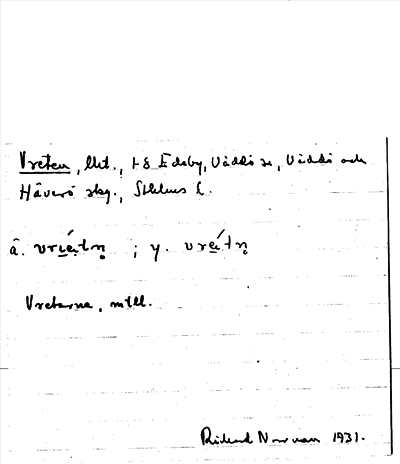 Vreten, lht., t. S Edeby, Väddö sn, Väddö och
Häverö skg., Sthlms l.
ä. vrıé̠ḁtn̥ ; y. vre̠átn̥
Vretarna, mtll.
Rickard Norrman 1931.